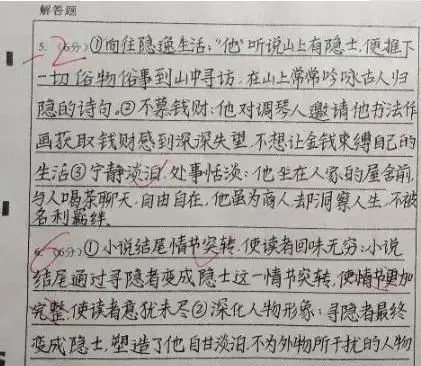 解答题
5. (6分) ①向往隐逸生活："他"听说山上有隐士,便推下
一切俗物俗事到山中寻访,在山上常常吟咏古人归
隐的诗句。②不慕钱财:他对调琴人邀请他书法作
画获取钱财感到深深失望,不想让金钱束缚自己的
生活③宁静淡泊,处事恬淡:他坐在人家的屋舍前,
与人喝茶聊天,自由自在,他虽为商人却洞察人生,不被
名利羁绊.
6. (6分) ①小说结尾情节突转,使读者回味无穷:小说
结尾通过寻隐者变成隐士这一情节突转,使情节更加
完整,使读者意犹未尽②深化人物形象:寻隐者最终
变成隐士,塑造了他自甘淡泊,不为外物所干扰的人物